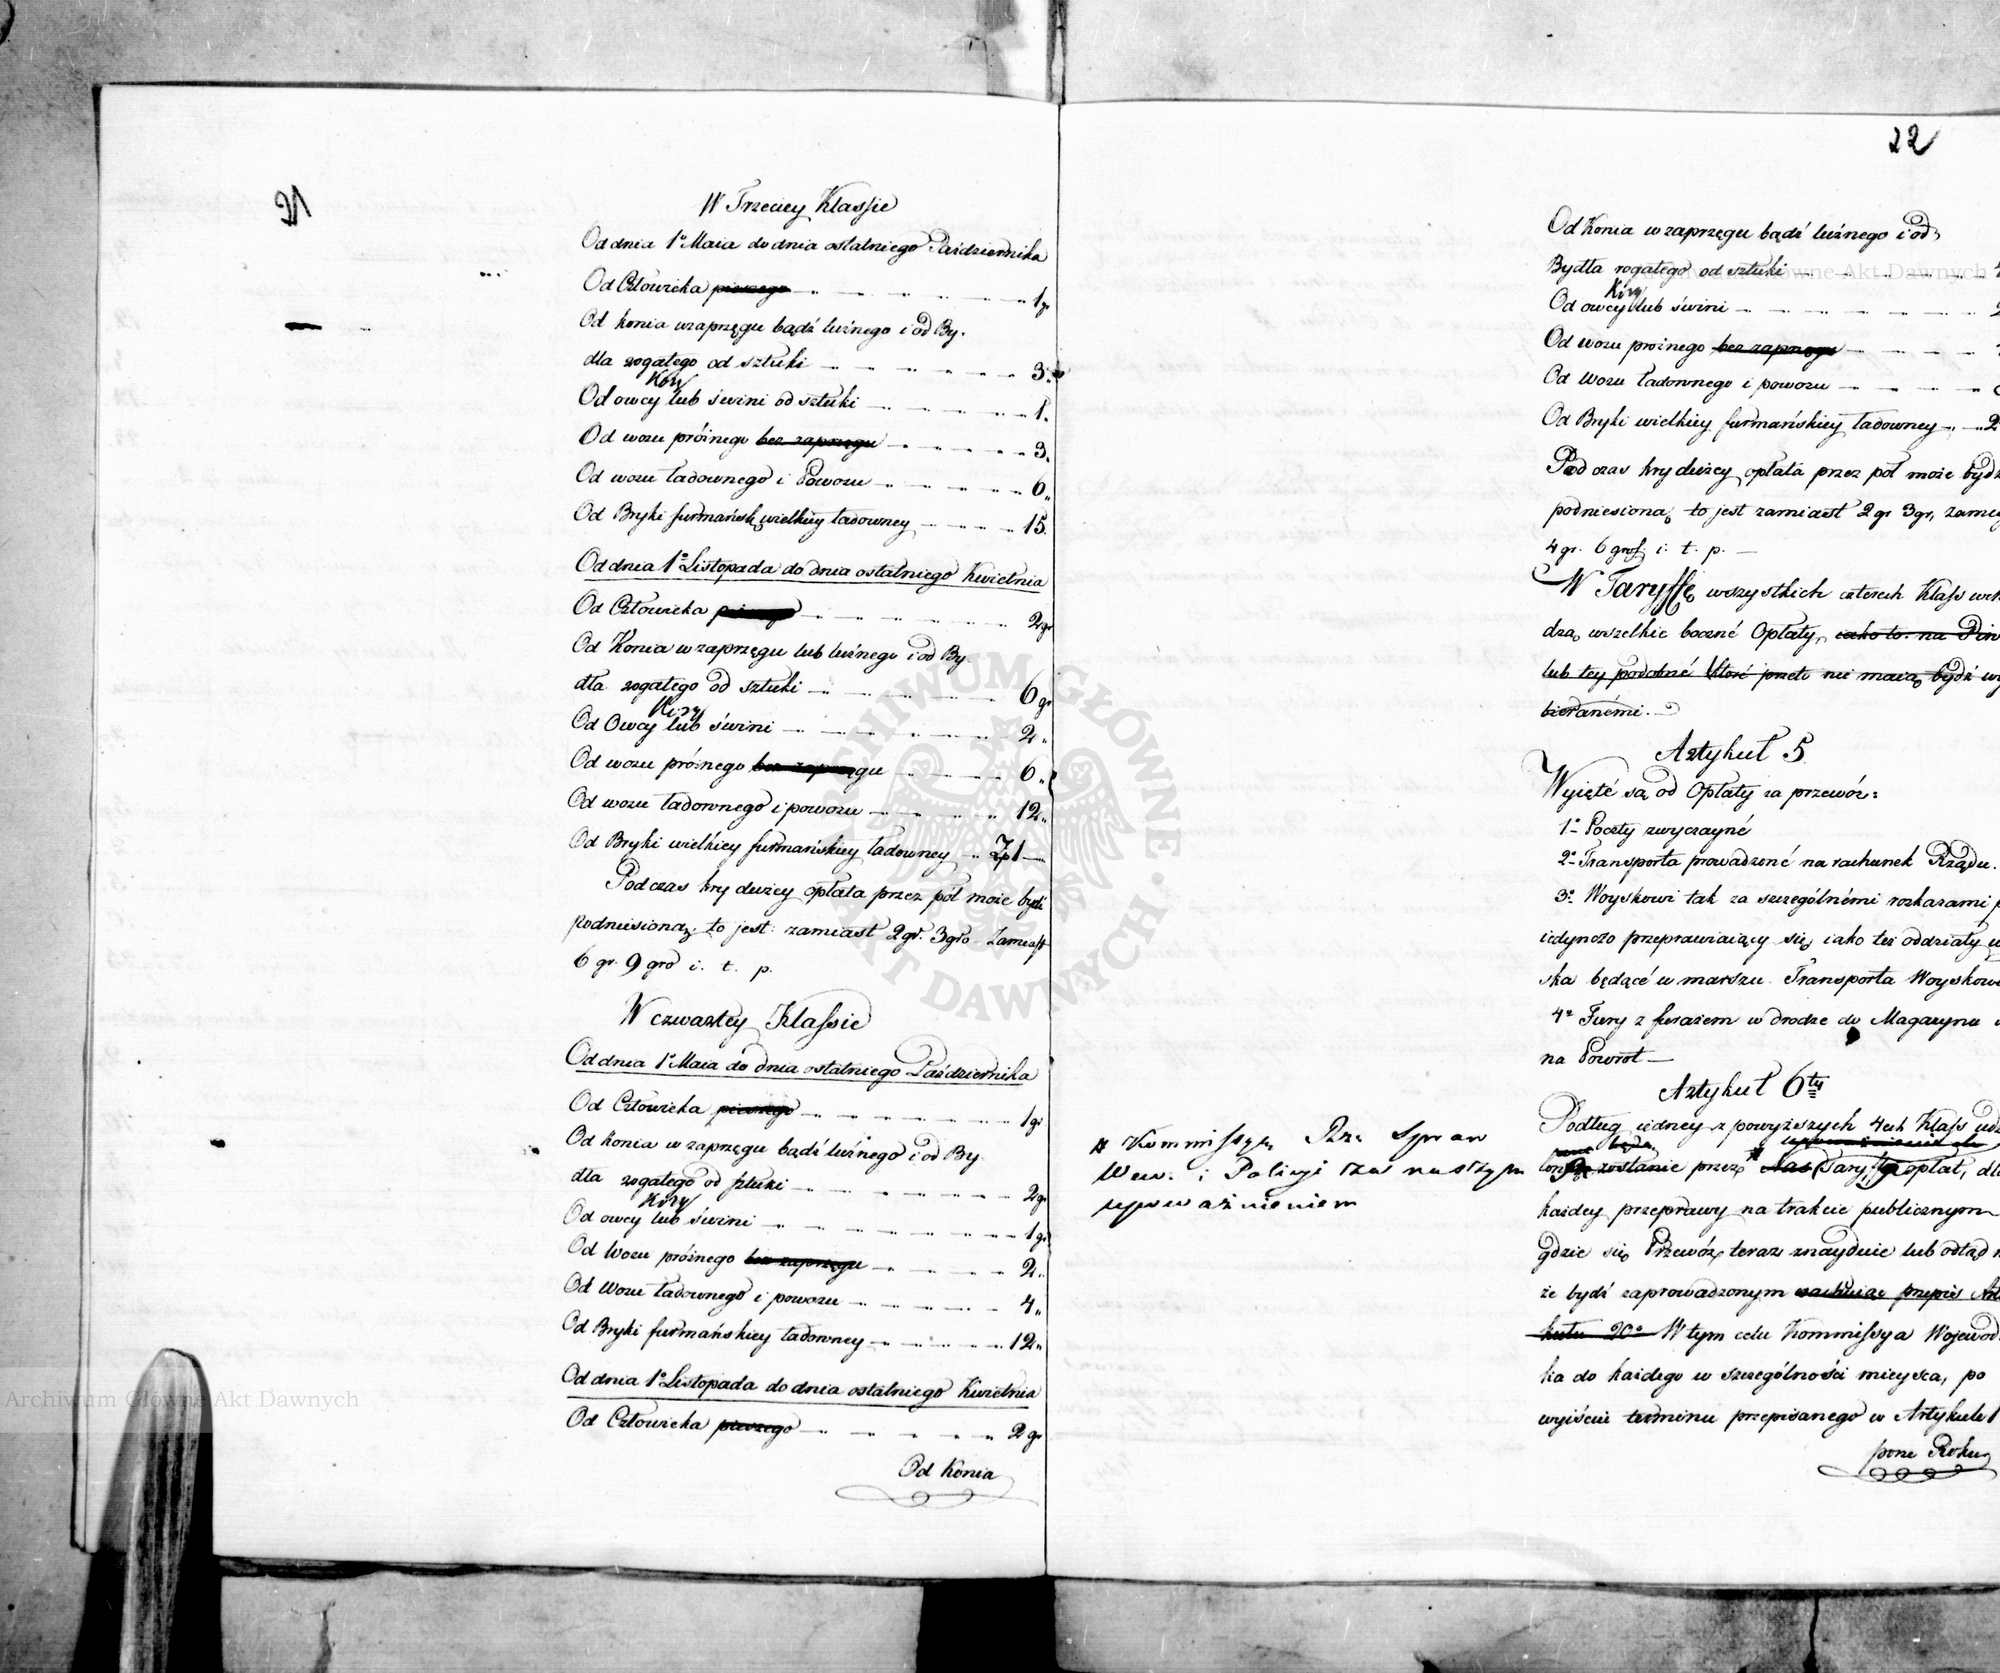 21
W Trzeciey Klassie
Od dnia 1º Maia do dnia ostatniego Października
Od Człowieka pieszego 1 gr
Od konia w zaprzęgu bądź luźnego i od By-
dła rogatego od sztuki 3.
Kozy
Od owcy lub świni od sztuki 1.
Od wozu próżnego bez zaprzęgu 3.
Od wozu ładownego i Powozu 6.
Od Bryki furmańsk. wielkiey ładowney 15.
Od dnia 1º Listopada do dnia ostatniego Kwietnia
Od Człowieka 2 gr
Od Konia w zaprzęgu lub luźnego i od By-
dła rogatego od sztuki 6 gr
Kozy
Od Owcy lub świni 2.
Od wozu próżnego bez zaprzęgu 6.
Od wozu ładownego i powozu 12.
Od Bryki wielkiey furmańskiey ładowney Zł 1
Podczas kry dużey opłata przez pół może bydź
podniesioną, to jest: zamiast 2 gr. 3 gro. Zamiast
6 gr. 9 gro i. t. p.
W czwartey Klassie
Od dnia 1º Maia do dnia ostatniego Października
Od Człowieka pieszego 1 gr
Od Konia w zaprzęgu bądź luźnego i od By-
dła rogatego od sztuki 2 gr
Kozy
Od owcy lub świni 1 gr
Od Wozu próżnego bez zaprzęgu 2.
Od Wozu ładownego i powozu 4.
Od Bryki furmańskiey ładowney 12.
Od dnia 1º Listopada do dnia ostatniego Kwietnia
Od Człowieka pieszego 2 gr
Od Konia
22
Od Konia w zaprzęgu bądź luźnego i od
Bydła rogatego od sztuki
Kozy
Od owcy lub świni
Od wozu próżnego bez zaprzęgu
Od Wozu ładownego i powozu
Od Bryki wielkiey furmańskiey ładowney 2
Podczas kry dużey opłata przez pół może bydź
podniesioną, to jest zamiast 2 gr 3 gr,
4 gr. 6 gro. i. t. p.
W Taryffę wszystkich czterech Klass
dzą wszelkie boczné Opłaty, iako to: na
lub tey podobné Które przeto nie maią bydź
bieranémi.
Artykuł 5
Wyięté są od Opłaty za przewóz:
1º Poczty zwyczayné
2º Transporta prowadzoné na rachunek Rządu.
3º Woyskowi tak za szczególnémi rozkazami
iedynczo przeprawiaiący się, iako też oddziały
ska będącé w marszu. Transporta Woyskowe
4º Fury z furażem w drodze do Magazynu
na Powrót
Artykuł 6ty
Podług iedney z powyższych 4ech Klass
będą
zostanie przez Nas Taryffa opłat,
* Kommissyę Rzą. Spraw
Wew. i Policyi za naszym
upoważnieniem
każdey przeprawy na trakcie publicznym
gdzie się Przewóz teraz znayduie lub odtąd
że bydź zaprowadzonym przepis
kułu 20º W tym celu Kommissya Wojewodz
ka do każdego w szczególności mieysca, po
wyiściu terminu przepisanego w Artykule 1
Roku
Archiwum Główne Akt Dawnych
Archiwum Główne Akt Dawnych
ARCHIWUM GŁÓWNE AKT DAWNYCH